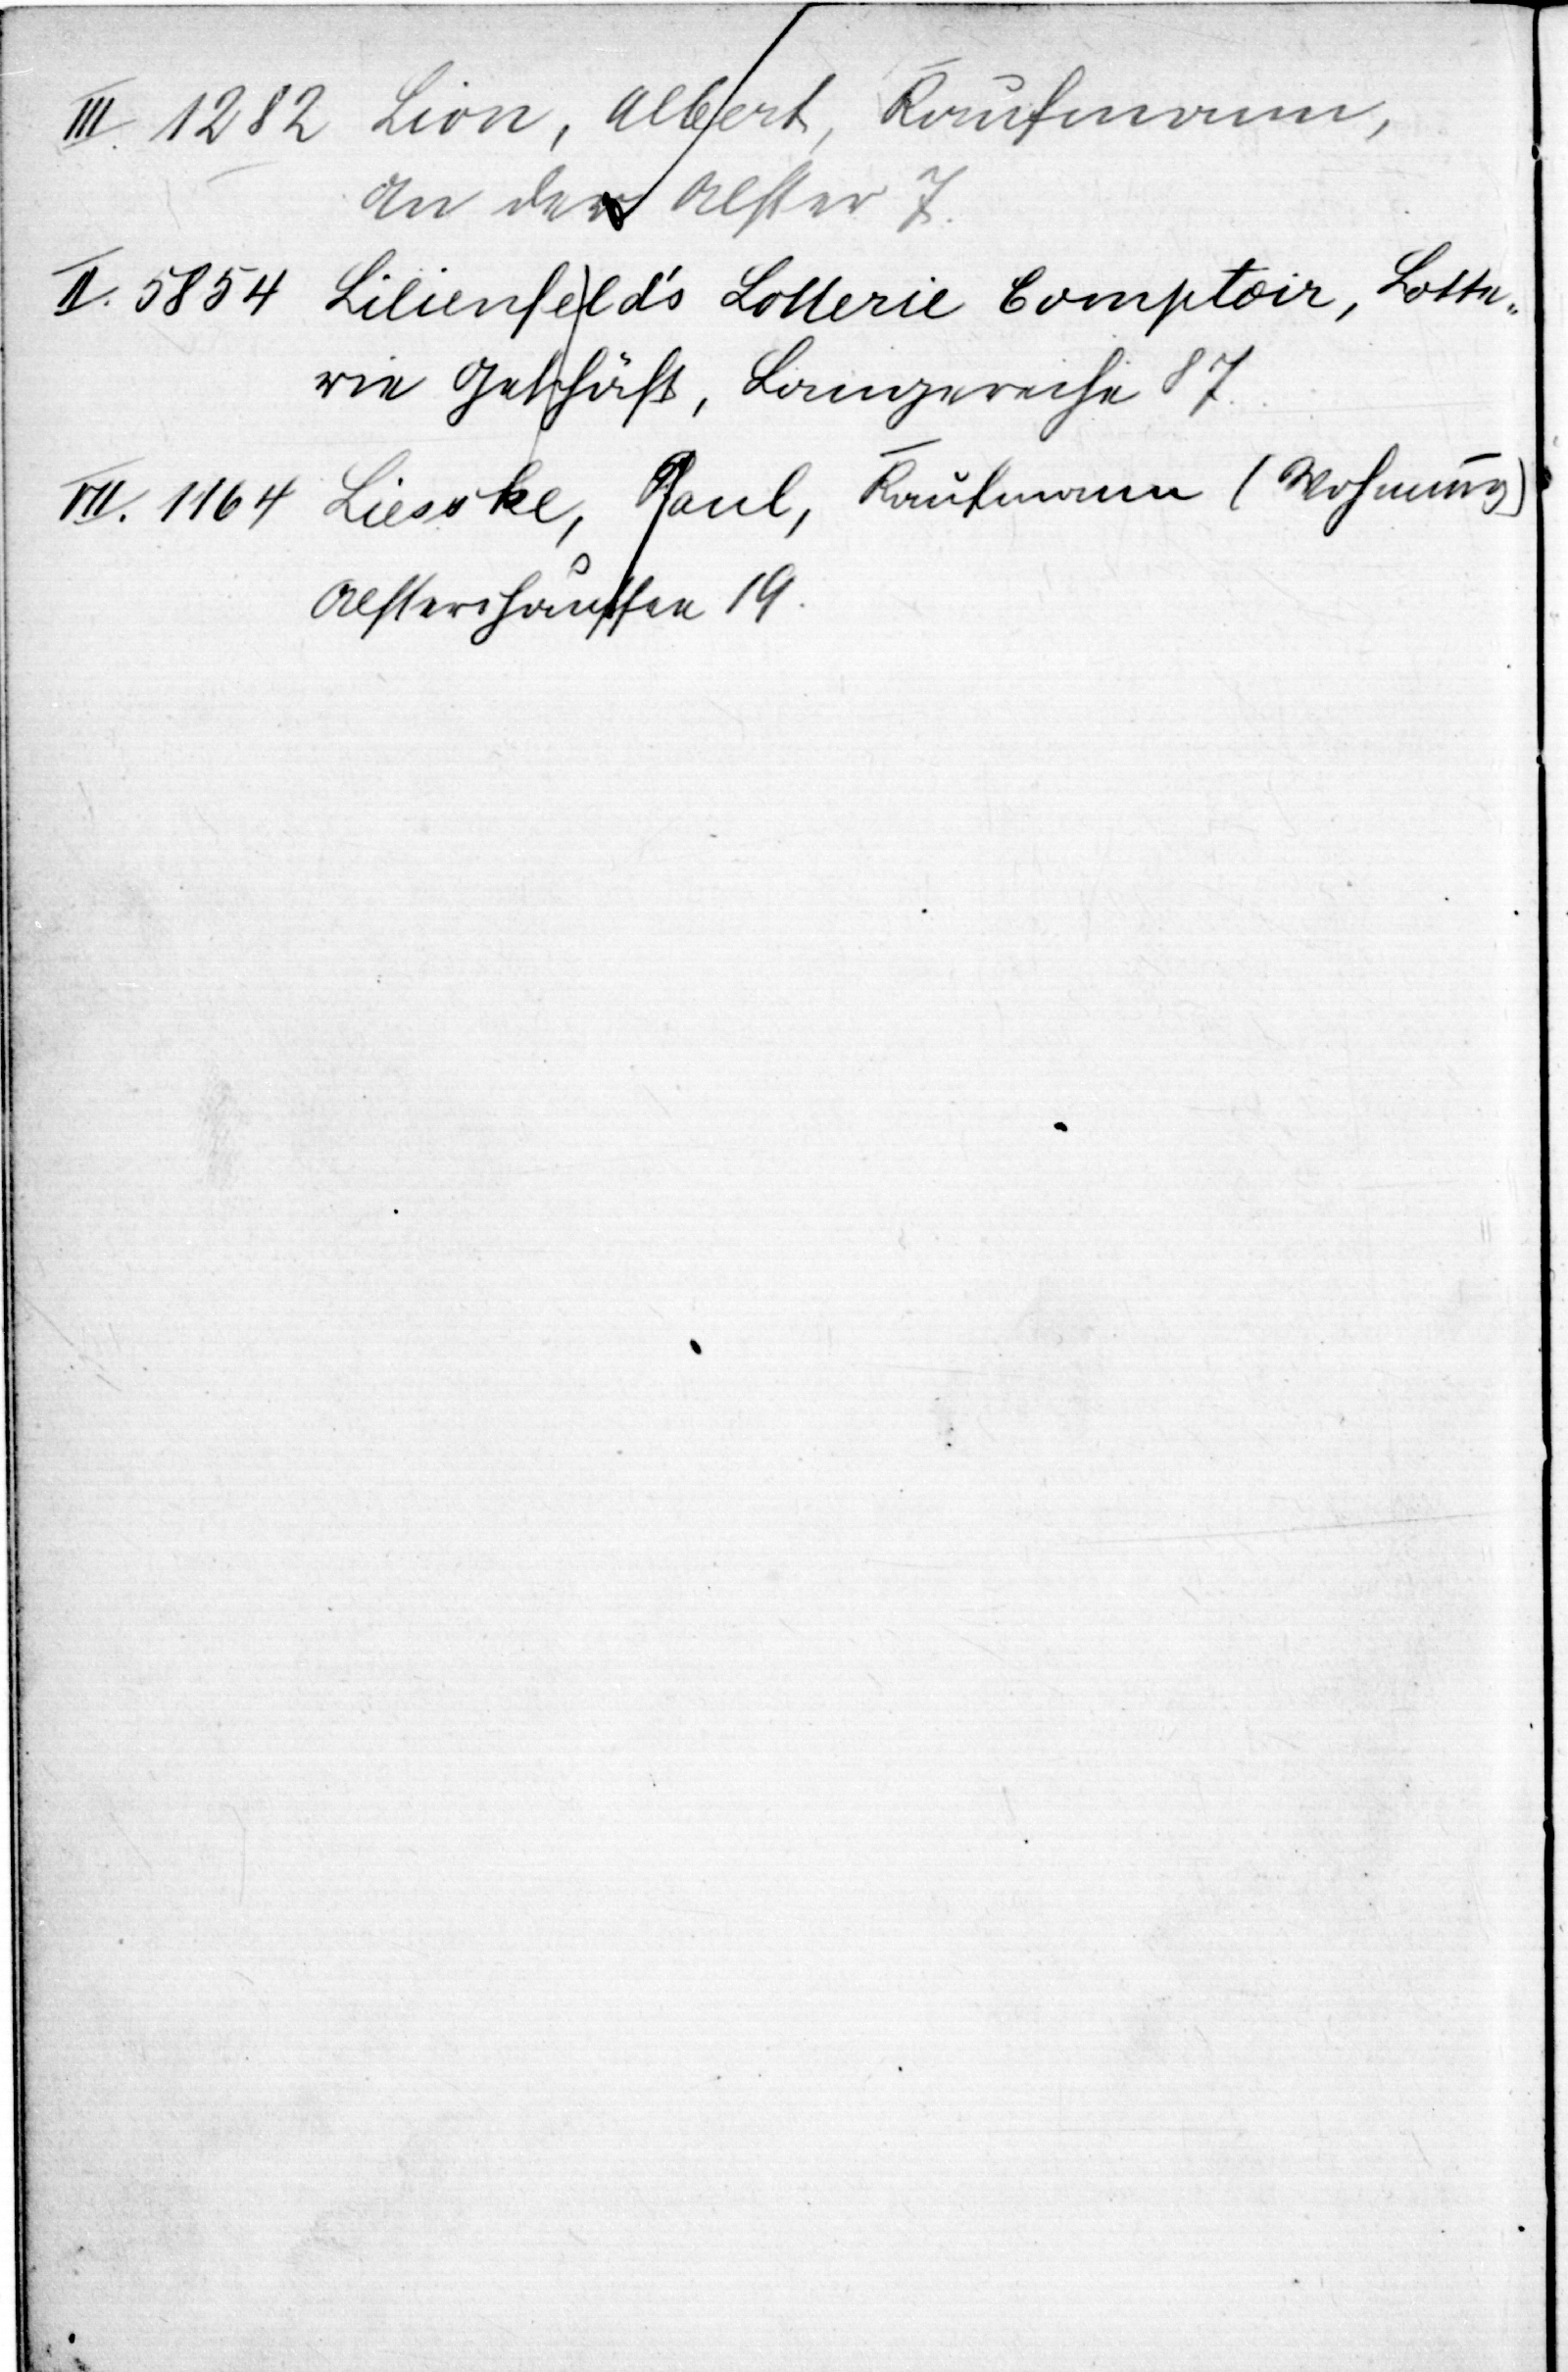 III. 1282 Lion, Albert, Kaufmann,
An der Alster 7.
II. 5854 Lilienfeld's Lotterie Comptoir, Lotte„
rie Geschäft, Langereihe 87.
VII. 1164 Liesske, Paul, Kaufmann (Wohnung)
Alsterchaussee 19.